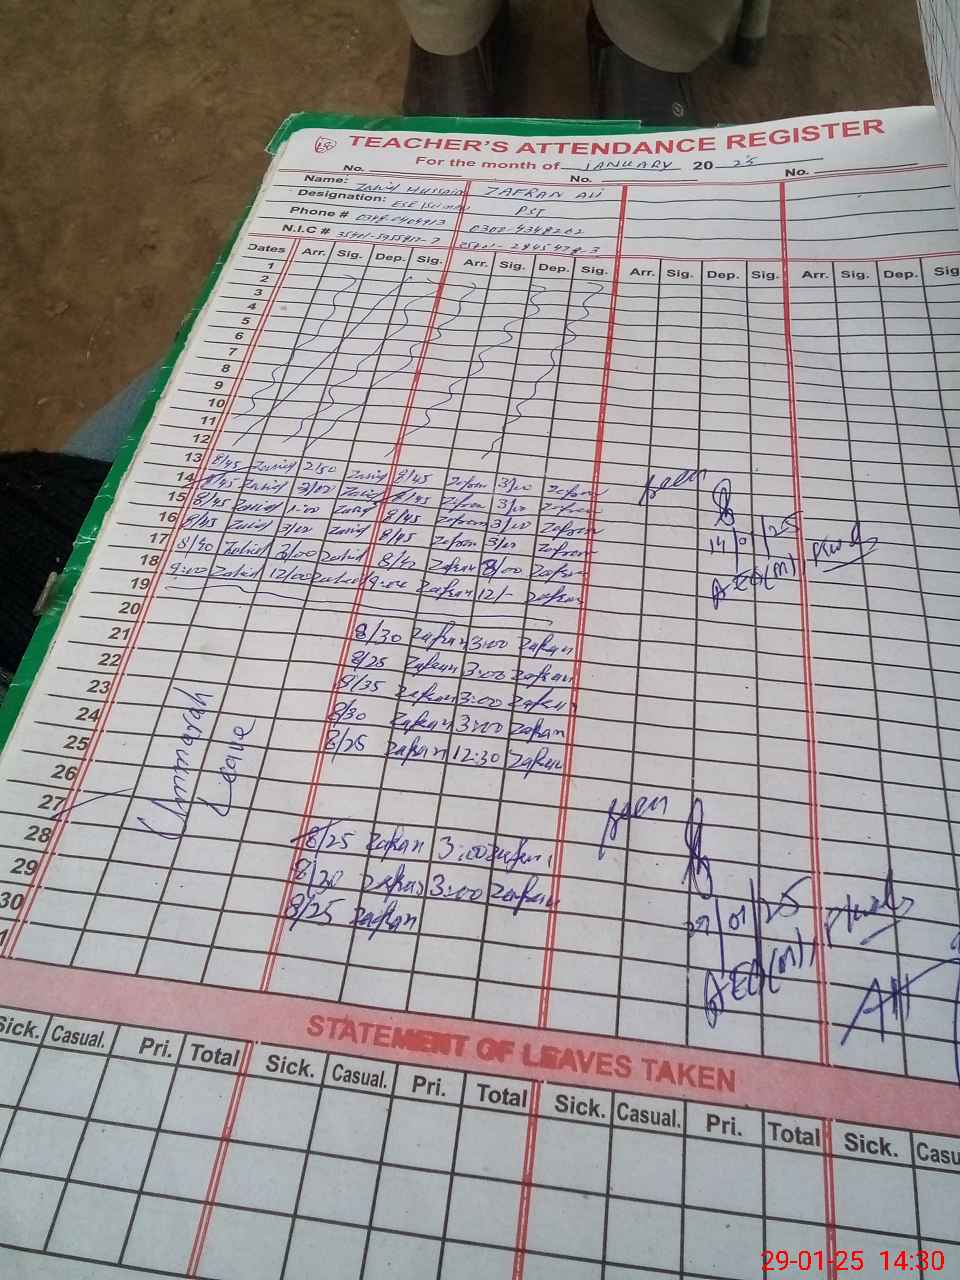 TEACHER'S ATTENDANCE REGISTER
For the month of JANUARY 20 25
No. No. No.
Name: Zahid Hussain ZAFRAN Ali
Designation: ESE PST
Phone # 0302-4348202
N.I.C #
Dates Arr. Sig. Dep. Sig. Arr. Sig. Dep. Sig. Arr. Sig. Dep. Sig. Arr. Sig. Dep. Sig
1
2
3
4
5
6
7
8
9
10
11
12
13 8/45 Zahid 2/50 Zahid 8/45 Zafran 3/00 Zafran
14 8/45 Zahid 3/00 Zahid 8/45 Zafran 3/00 Zafran
15 8/45 Zahid 1:00 Zahid 8/45 Zafran 3/00 Zafran
16 8/45 Zahid 3/00 Zahid 8/45 Zafran 3/00 Zafran
17 8/40 Zahid 3/00 Zahid 8/40 Zafran 3/00 Zafran
18 9:00 Zahid 12/00 Zahid 9:00 Zafran 12/- Zafran
19
20 8/30 Zafran 3:00 Zafran
21 8/25 Zafran 3:00 Zafran
22 8/35 Zafran 3:00 Zafran
23 8/30 Zafran 3:00 Zafran
24 8/25 Zafran 12:30 Zafran
25
26
27 8/25 Zafran 3:00 Zafran
28 8/30 Zafran 3:00 Zafran
29 8/25 Zafran
30
1
Ummarah
Leave
Seen
14/01/25
AEO(M)
Seen
29/01/25
AEO(M)
STATEMENT OF LEAVES TAKEN
Sick. Casual. Pri. Total Sick. Casual. Pri. Total Sick. Casual. Pri. Total Sick. Casu
29-01-25 14:30